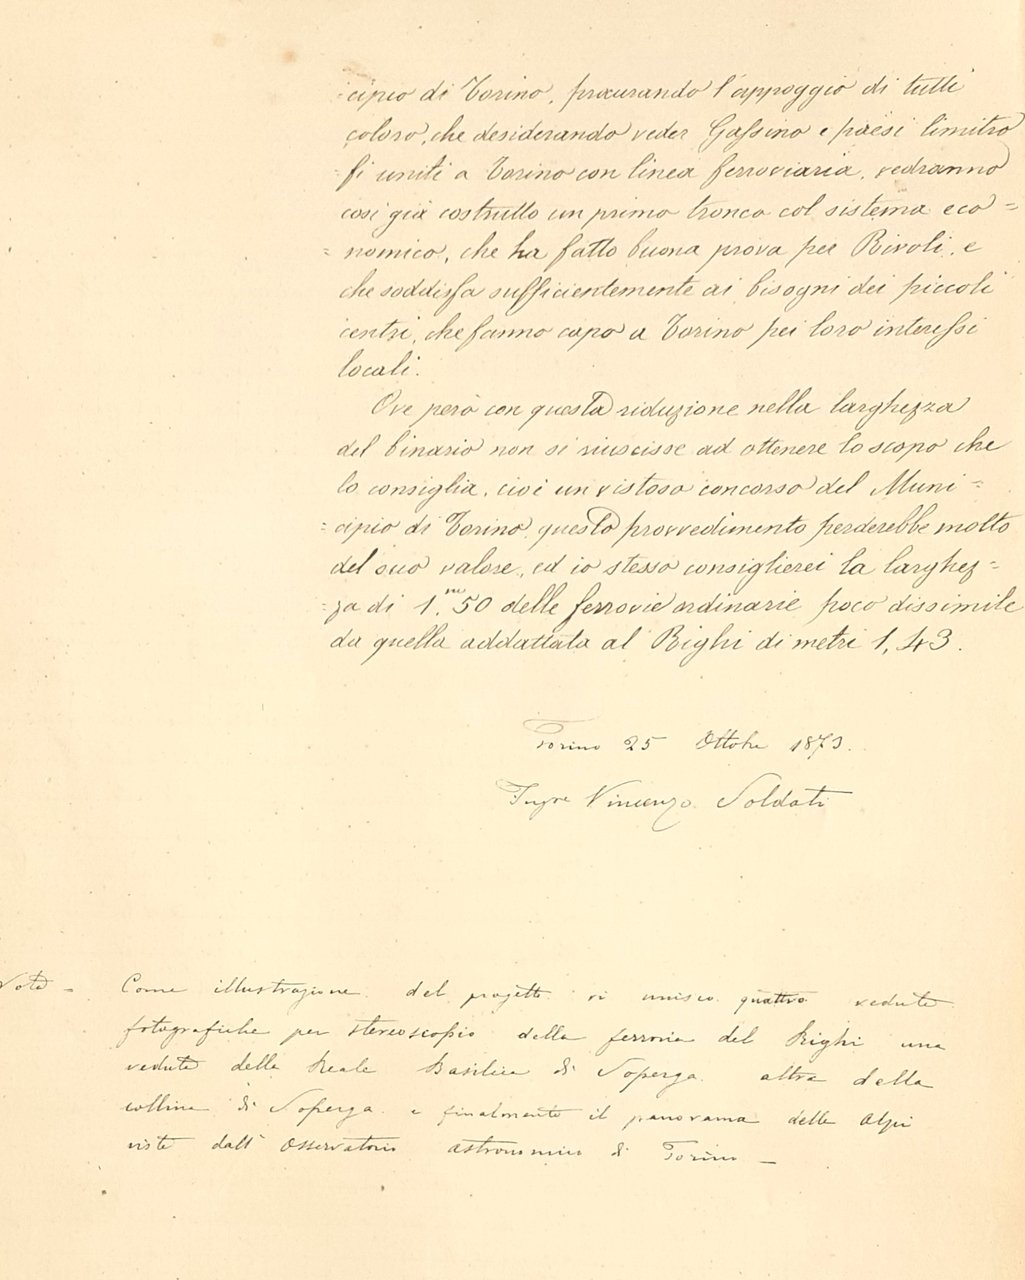 cipio di Torino, procurando l'appoggio di tutti
coloro, che desiderando veder Gassino e paesi limitro
fi uniti a Torino con linea ferroviaria, vedranno
così già costrutto un primo tronco col sistema eco=
=nomico, che ha fatto buona prova per Rivoli, e
che soddisfa sufficientemente ai bisogni dei piccoli
centri, che fanno capo a Torino pei loro interessi
locali.
Ove però con questa riduzione nella larghezza
del binario non si riuscisse ad ottenere lo scopo che
lo consiglia, cioè un vistoso concorso del Muni=
=cipio di Torino, questo provvedimento perderebbe molto
del suo valore, ed io stesso consiglierei la larghez=
=za di 1,m50 delle ferrovie ordinarie poco dissimile
da quella addattata al Righi di metri 1,43.
Torino 25 Ottobre 1873.
Ingre Vincenzo Soldati
Nota - Come illustrazione del progetto vi unisco quattro vedute
fotografiche per stereoscopio della ferrovia del Righi una
veduta della Reale Basilica di Soperga altra della
collina di Soperga e finalmente il panorama delle Alpi
viste dall'Osservatorio astronomico di Torino -